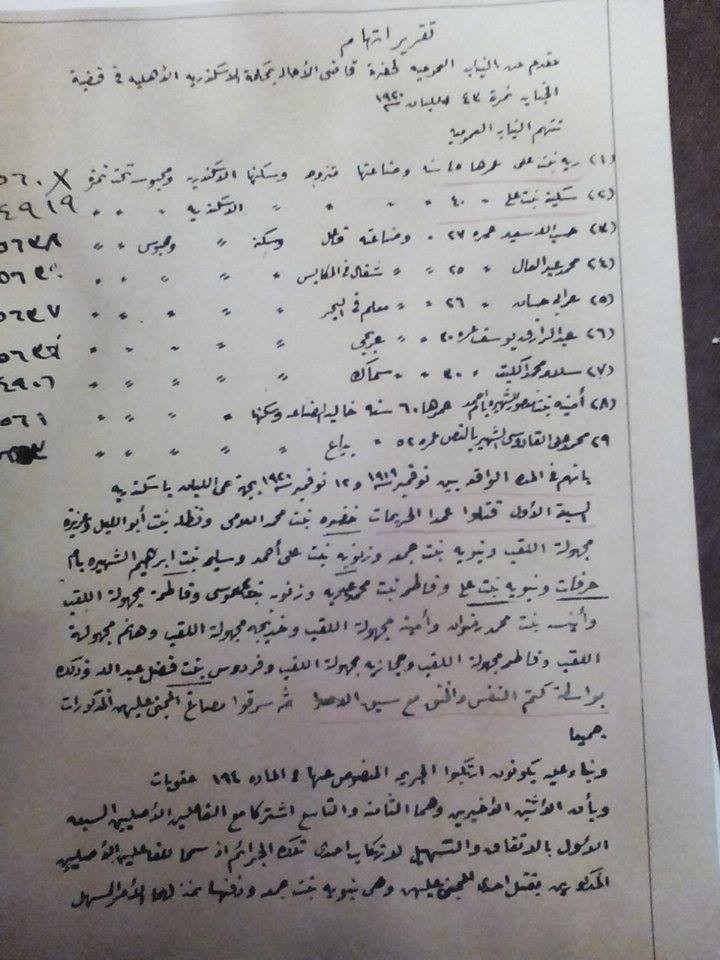 تقرير اتهام
مقدم من النيابه العموميه لحضرة قاضى الأحاله بمحكمة الاسكندريه الأهليه فى قضية
الجنايه نمرة ٤٣ اللبان ١٩٢٠
تتهم النيابه العموميه
(١) ريه بنت على عمرها ٤٥ سنه وصناعتها متزوجه وسكنها الاسكندريه ومحبوسه تحت نمرة ٥٦٠٨
(٢) سكينة بنت على " ٤٠ " " " " الاسكندريه " " " ٤٩١٩
(٣) حسب الله سعيد عمره ٢٧ " وصناعته فتال وسكنه " ومحبوس " "
(٤) محمد عبد العال " ٢٥ " " شغال فى المكابس " " " "
(٥) عرابى حسان " ٢٦ " " معلم فى البحر " " " " ٥٦٣٧
(٦) عبد الرازق يوسف عمره ٣٠ " " عربجى " " " "
(٧) سلامه محمد الكبت " ٣٠ " " سماك " " " " ٤٩٠٦
(٨) أمينه بنت منصور الشهيره بأم احمد عمرها ٦٠ سنه خاليه الصناعه وسكنها " " " ٥٦١
٩ محمد على القادوسى الشهير بالنص عمره ٥٢ " بياع " " " "
بأنهم فى المده الواقعه بين نوفمبر ١٩١٩ و ١٢ نوفمبر ١٩٢٠ بجهة اللبان باسكندريه
السبعة الأول قتلوا عمدا الحريمات خضره بنت محمد اللامى ونظله بنت أبو الليل وعزيزه
مجهولة اللقب ونبويه بنت جمعه وزنوبه بنت على أحمد وسليمه بنت ابراهيم الشهيره بأم
عرفات ونبويه بنت على وفاطمه بنت محمد عبد ربه وزنوبه بنت موسى وفاطمة مجهولة اللقب
وأنيسه بنت محمد رضوان وأمينة مجهولة اللقب وخديجه مجهولة اللقب وهانم مجهولة
اللقب وفاطمه مجهولة اللقب وحجازيه مجهولة اللقب وفردوس بنت فضل عبدالله وذلك
بواسطة كتم النفس والخنق مع سبق الاصرار ثم سرقوا مصاغ المجنى عليهن المذكورات
جميعا
وبناء عليه يكونون ارتكبوا الجريمه المنصوص عنها فى الماده ١٩٤ عقوبات
وبأن الأثنين الأخيرين وهما الثامنة والتاسع اشتركا مع الفاعلين الأصليين السبعه
الأول بالاتفاق والتسهيل لارتكاب احدى تلك الجرائم اذ سمحا للفاعلين الأصليين
المذكورين بقتل احدى المجنى عليهن وهى نبويه بنت جمعه ودفنها